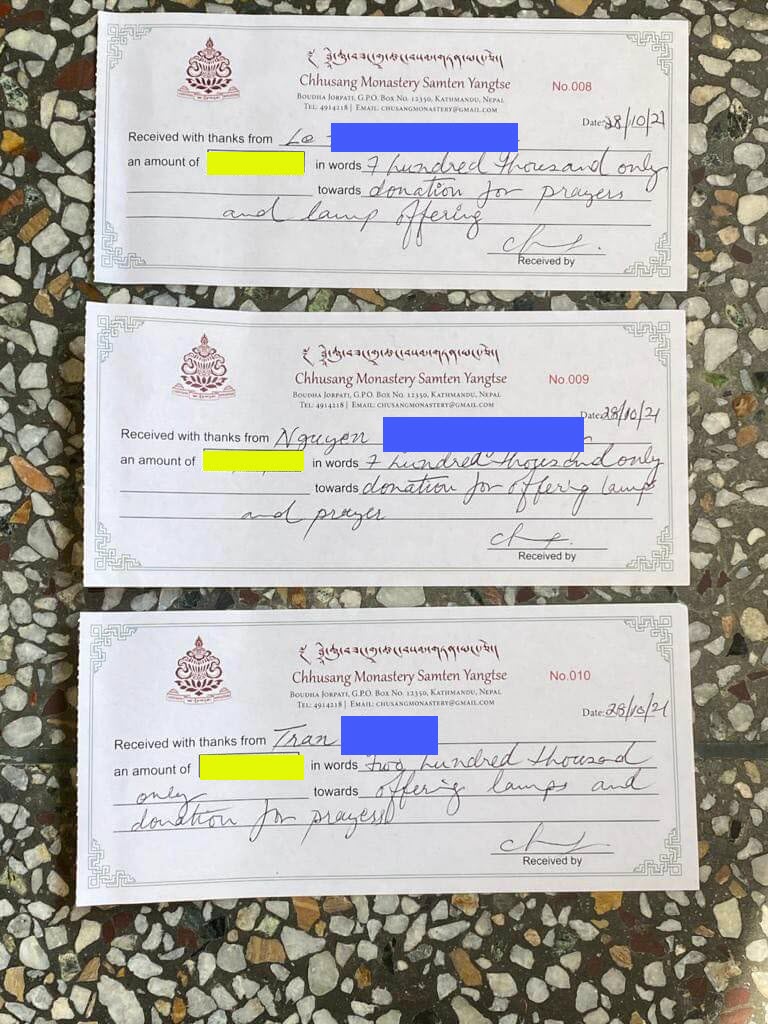 Chhusang Monastery Samten Yangtse
No.008
Boudha Jorpati, G.P.O. Box No. 12350, Kathmandu, Nepal
Tel: 4914218 | Email: chusangmonastery@gmail.com
Date: 28/10/21
Received with thanks from Le
an amount of in words 7 hundred thousand only
towards donation for prayers
and lamp offering
Received by
Chhusang Monastery Samten Yangtse
No.009
Boudha Jorpati, G.P.O. Box No. 12350, Kathmandu, Nepal
Tel: 4914218 | Email: chusangmonastery@gmail.com
Date: 28/10/21
Received with thanks from Nguyen
an amount of in words 7 hundred thousand only
towards donation for offering lamps
and prayer
Received by
Chhusang Monastery Samten Yangtse
No.010
Boudha Jorpati, G.P.O. Box No. 12350, Kathmandu, Nepal
Tel: 4914218 | Email: chusangmonastery@gmail.com
Date: 28/10/21
Received with thanks from Tran
an amount of in words Two hundred thousand
only towards offering lamps and
donation for prayers
Received by